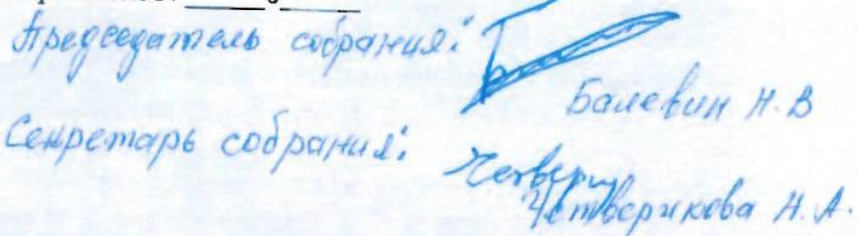 Председатель собрания:
Балевин Н.В
Секретарь собрания:
Четверикова Н.А.